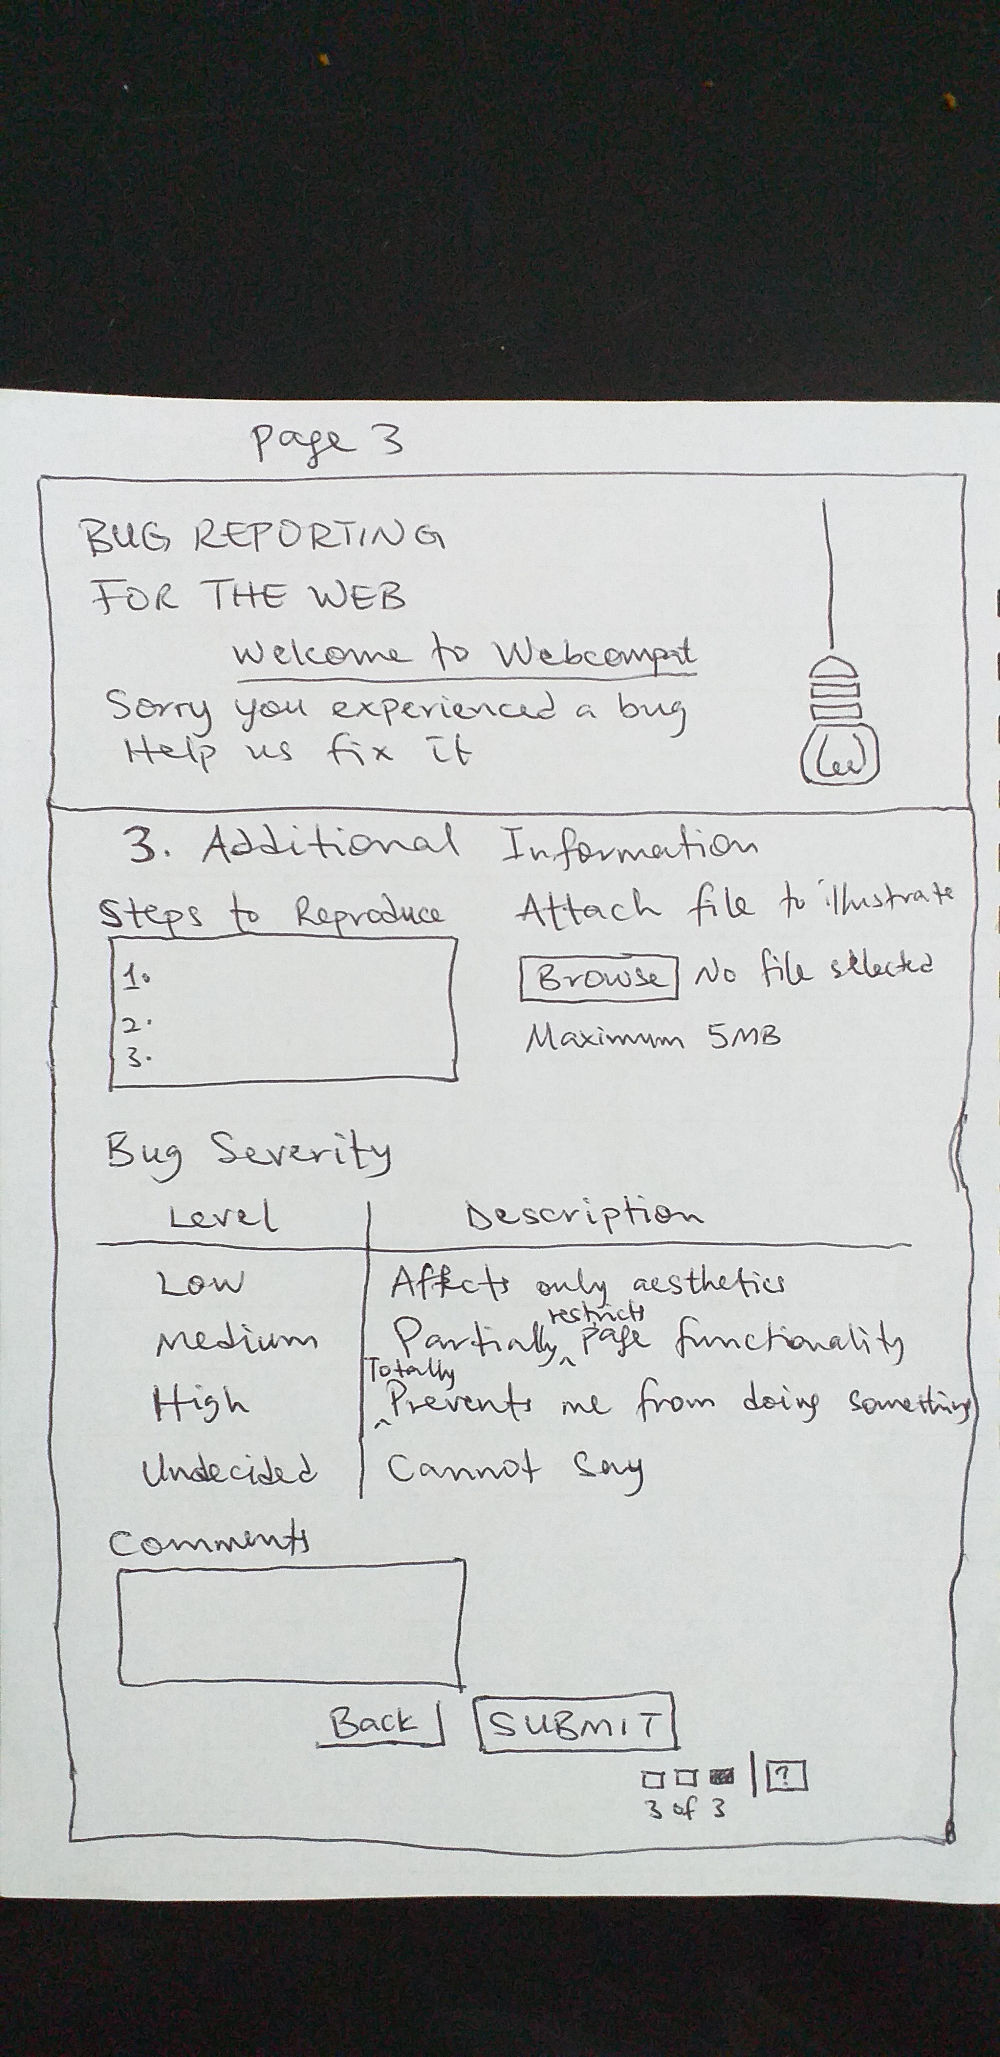 Page 3
BUG REPORTING
FOR THE WEB
Welcome to Webcompat
Sorry you experienced a bug
Help us fix it
3. Additional Information
Steps to Reproduce
1.
2.
3.
Attach file to illustrate
Browse No file selected
Maximum 5MB
Bug Severity
Level Description
Low Affects only aesthetics
Medium Partially restricts page functionality
High Totally Prevents me from doing something
Undecided Cannot say
Comments
Back SUBMIT
?
3 of 3